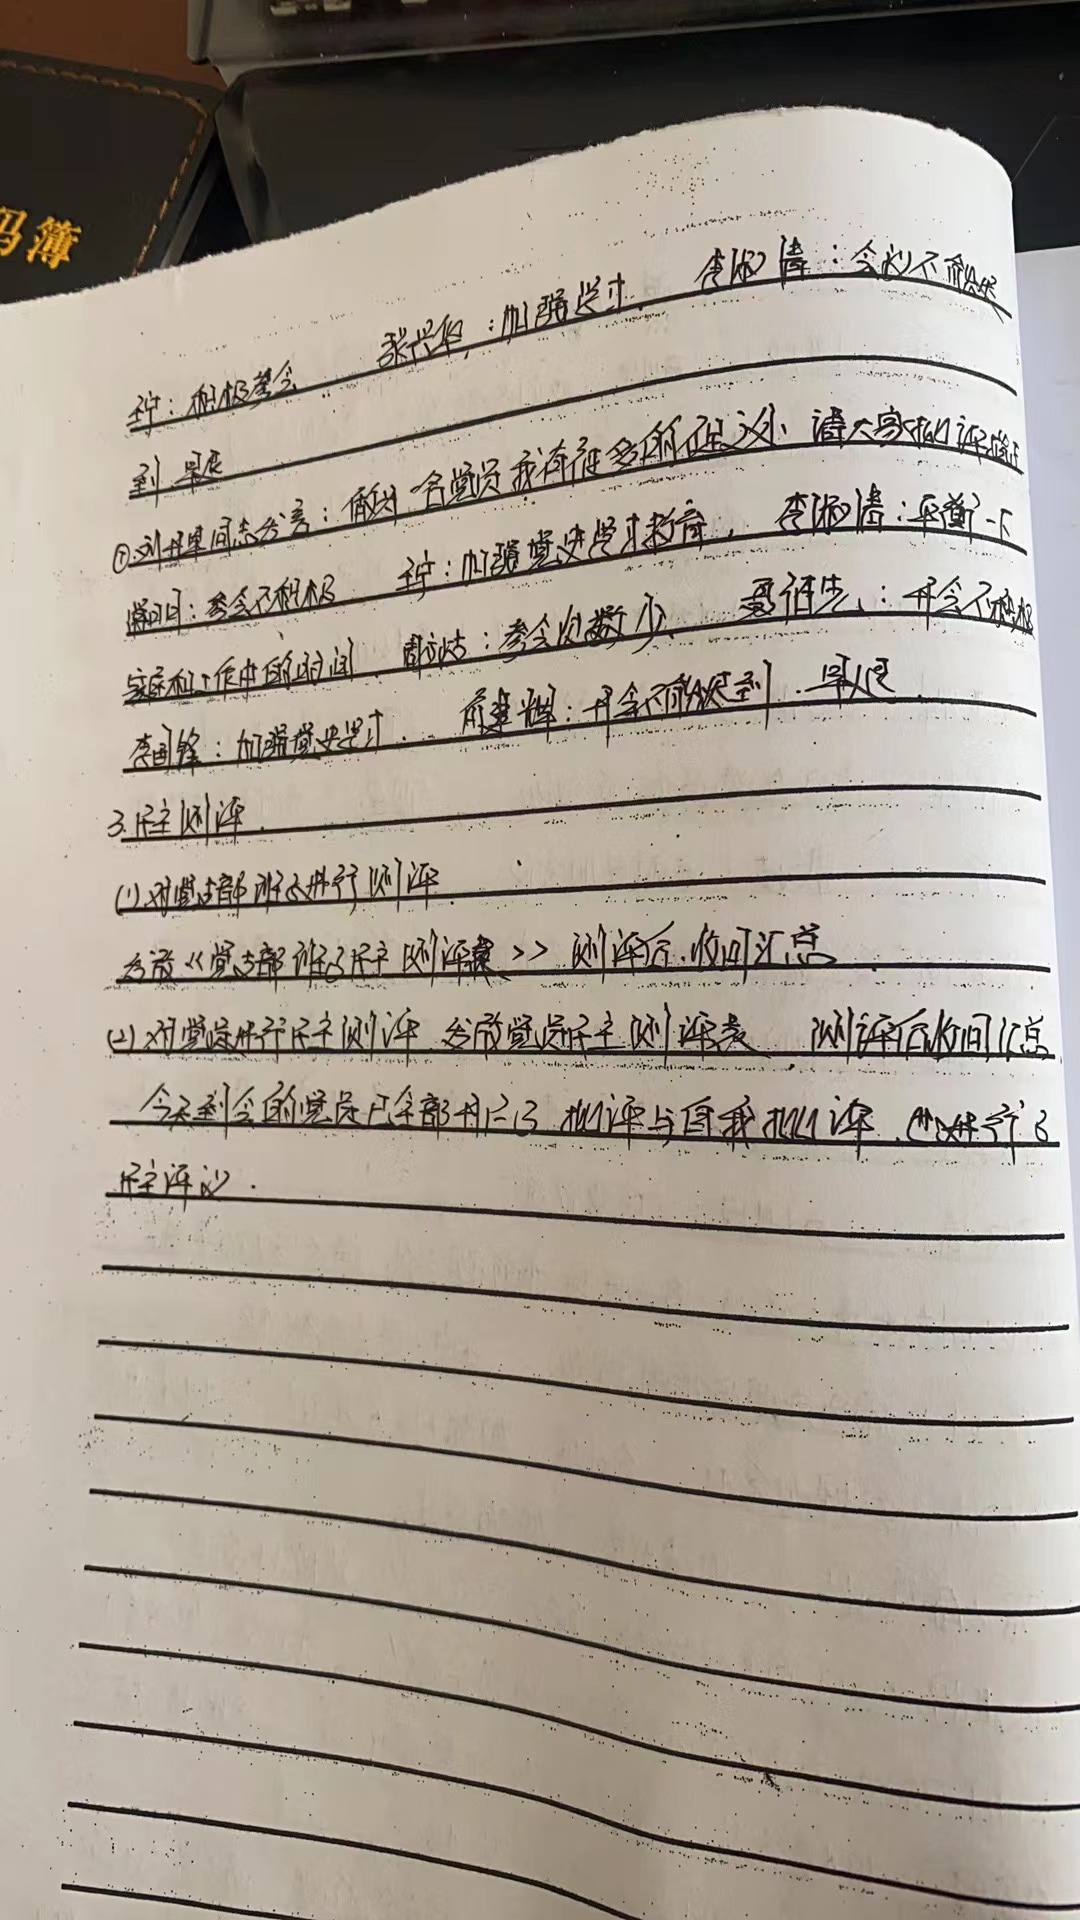 码簿
积极参会 张兴华：加强学习 李淑清：会议不能迟
到早退
⑦刘丹单同志发言：做为一名党员我存在多的不足之处、请大家批评指正
参会不积极 加强党史学习教育， 李淑清：平衡一下
家庭和工作中的时间 参会次数少、 开会不积极
李国锋：加强党史学习、 前建辉：开会不能迟到、早退
3.民主测评.
(1)对党支部班子进行测评
发放《党支部班子民主测评表》测评后、收回汇总
(2)对党员进行民主测评 发放党员民主测评表 测评后收回汇总
今天到会的党员已全部开启了批评与自我批评、进行了
民主评议.